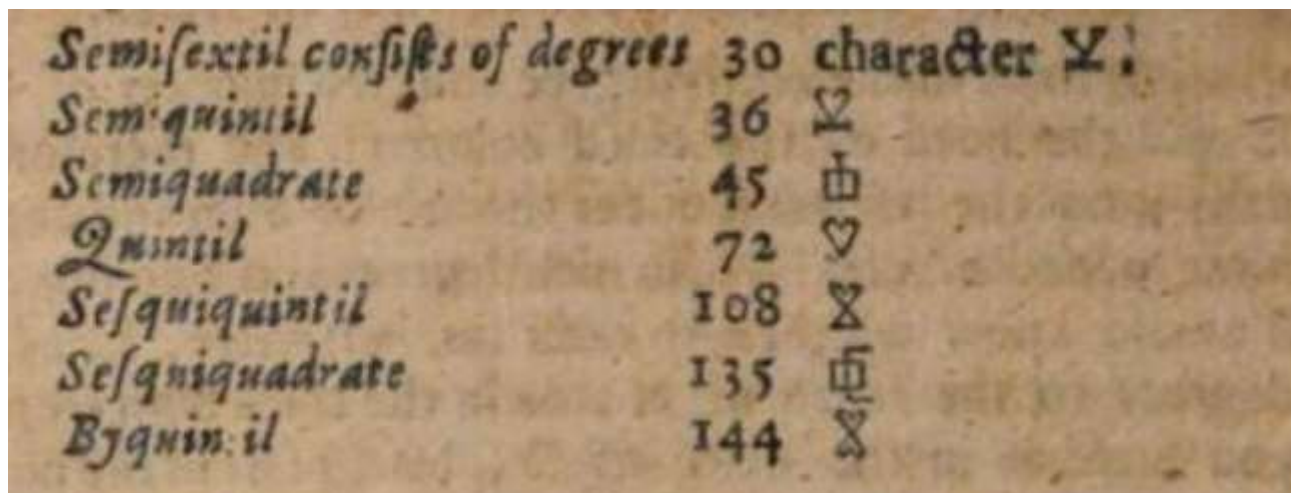 Semiſextil conſiſts of degrees 30 character ⚺.
Semiquintil 36
Semiquadrate 45
Quintil 72
Seſquiquintil 108
Seſquiquadrate 135
Byquintil 144